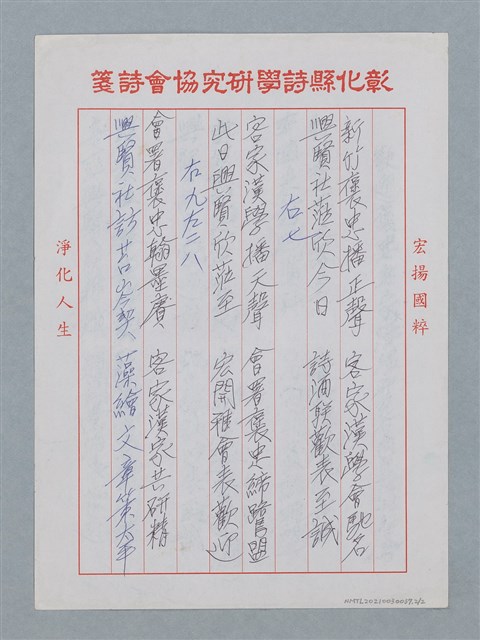 彰化縣詩學研究協會詩箋
宏揚國粹
新竹褒忠播正聲 客家漢學會馳名
興賢社蒞欣今日 詩酒聯歡表至誠
右七
客家漢學播天聲 會署褒忠締鷺盟
此日興賢欣蒞至 宏開雅會表歡迎
右九左二八
會署褒忠翰墨賡 客家漢家共研精
興賢社訪苔岑契 藻繪文章第
淨化人生
NMTL20210050057.2/2